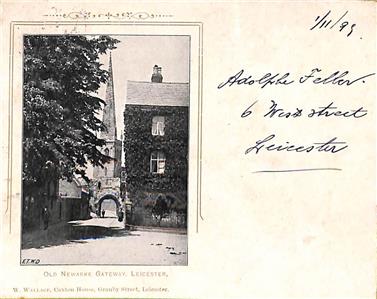 1/11/99
Adolphe Feller.
6 West street
Leicester
E.T.W.D
OLD NEWARKE GATEWAY, LEICESTER,
W. WALLACE, Caxton House, Granby Street, Leicester.